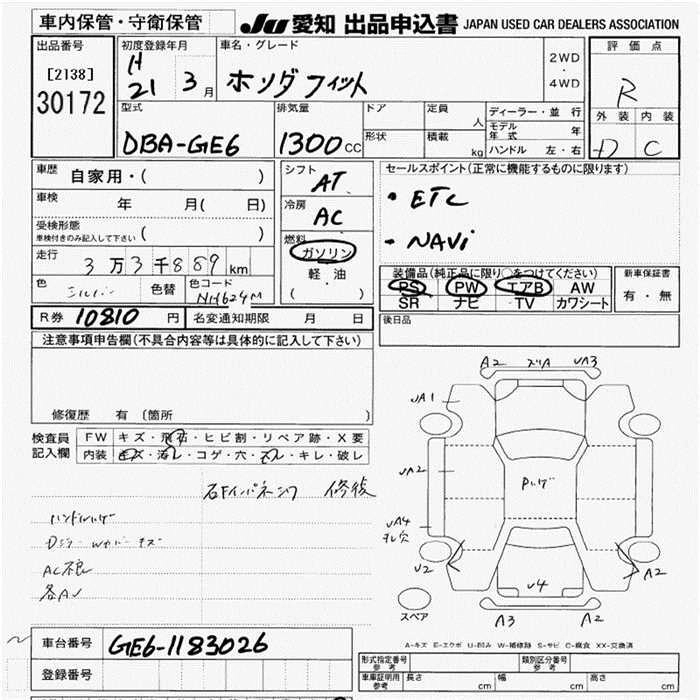 車内保管・守衛保管
JU 愛知 出品申込書 JAPAN USED CAR DEALERS ASSOCIATION
出品番号
[2138]
30172
初度登録年月
H
21 3月
車名・グレード
ホンダ フィット
2WD
・
4WD
評価点
R
外装 内装
D C
型式
DBA-GE6
排気量
1300 cc
ドア
形状
定員
人
積載
kg
ディーラー・並行
モデル年式 年
ハンドル 左・右
車歴
自家用・( )
車検
年 月( 日)
受検形態
車検付きのみ記入して下さい ( )
走行
3万3千889 km
色
シルバー
色替
色コード
NH624M
シフト
AT
冷房
AC
燃料
ガソリン
軽・油
( )
セールスポイント(正常に機能するものに限ります)
・ETC
・NAVi
装備品(純正品に限り○をつけてください)
PS PW エアB AW
SR ナビ TV カワシート
新車保証書
有・無
R券 10810 円 名変通知期限 月 日
後日品
注意事項申告欄(不具合内容等は具体的に記入して下さい)
修復歴 有〔箇所 〕
検査員
記入欄
FW キズ・飛石・ヒビ割・リペア跡・X要
内装 キズ・汚レ・コゲ・穴・スレ・キレ・破レ
右Fインパネ 修後
AC不良
各AU
A2 ズリA UA3
UA1
UA2
UA4
U2
U4
A2
A3 A2
スペア
A-キズ E-エクボ U-凹み W-補修跡 S-サビ C-腐食 XX-交換済
車台番号 GE6-1183026
登録番号
形式指定番号
参考
類別区分番号
参考
車庫証明用
参考
長さ cm 幅 cm 高さ cm